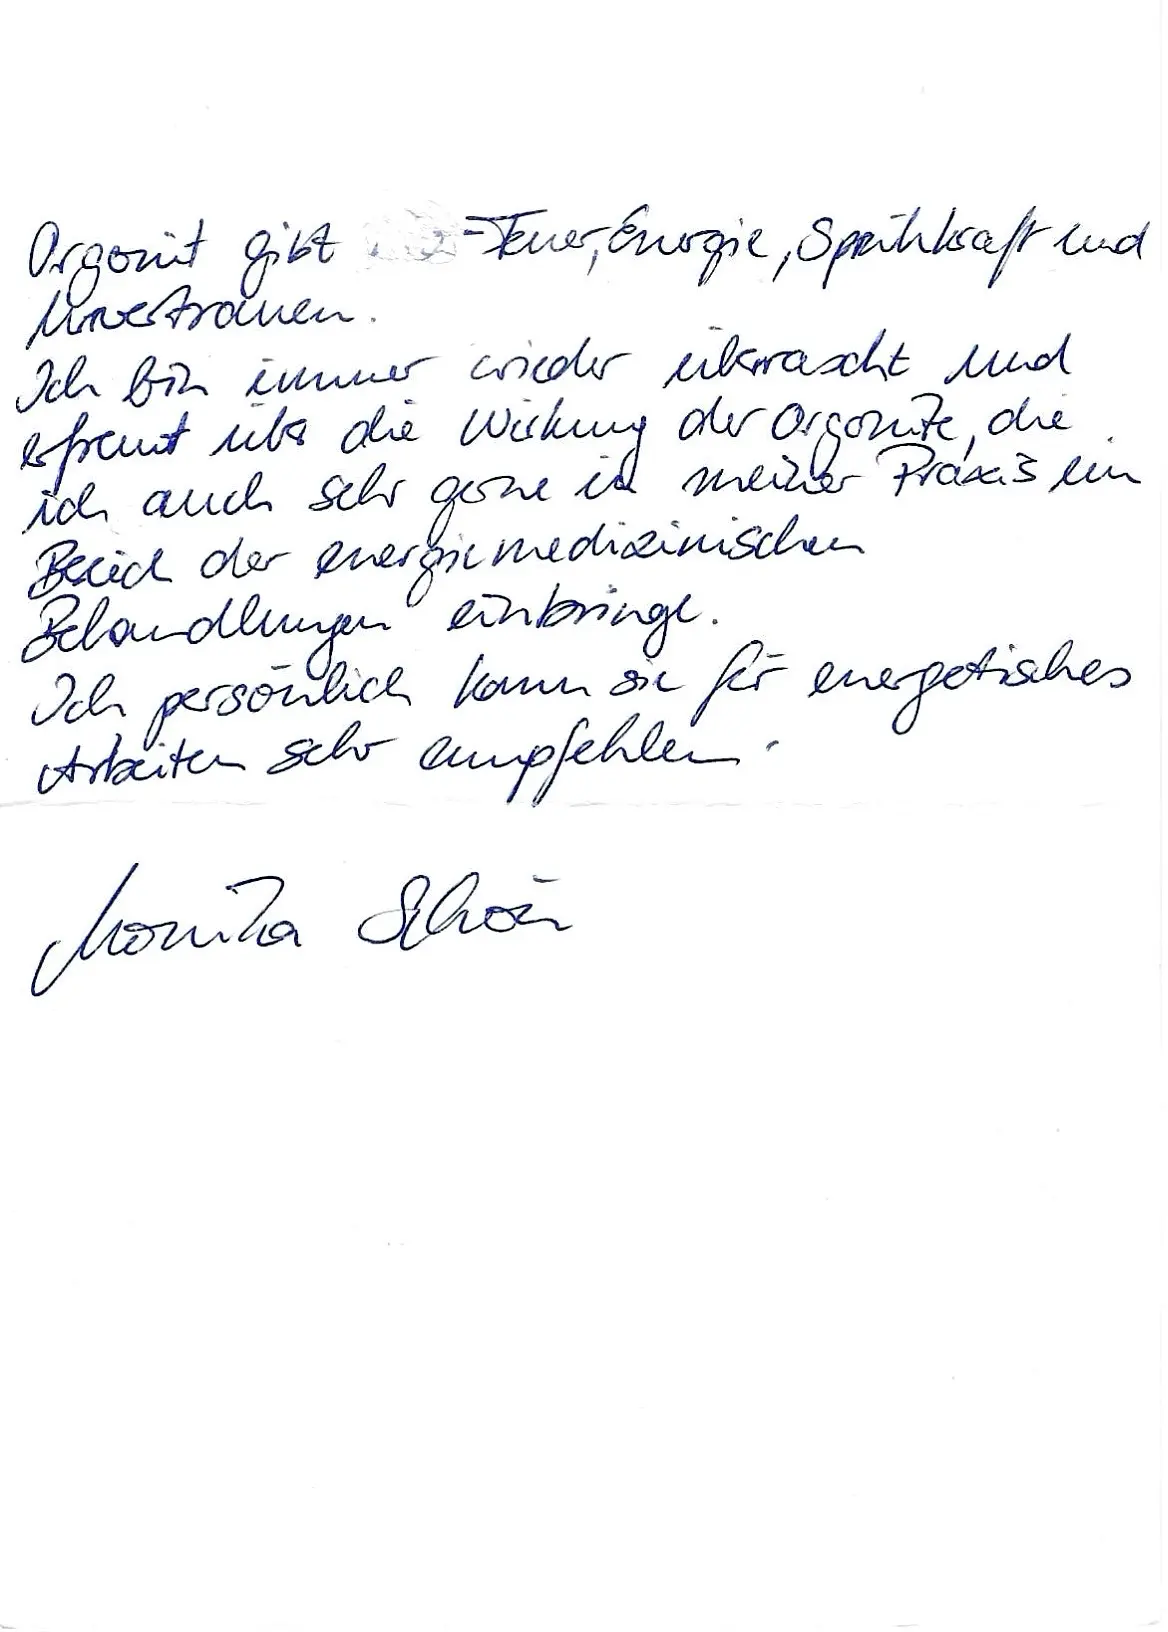 Orgonit gibt -Feuer, Energie, Sprühkraft und
Urvertrauen.
Ich bin immer wieder überrascht und
erfreut über die Wirkung der Orgonite, die
ich auch sehr gerne in meiner Praxis im
Bereich der energiemedizinischen
Behandlungen einbringe.
Ich persönlich kann sie für energetisches
Arbeiten sehr empfehlen.
Monika Schön